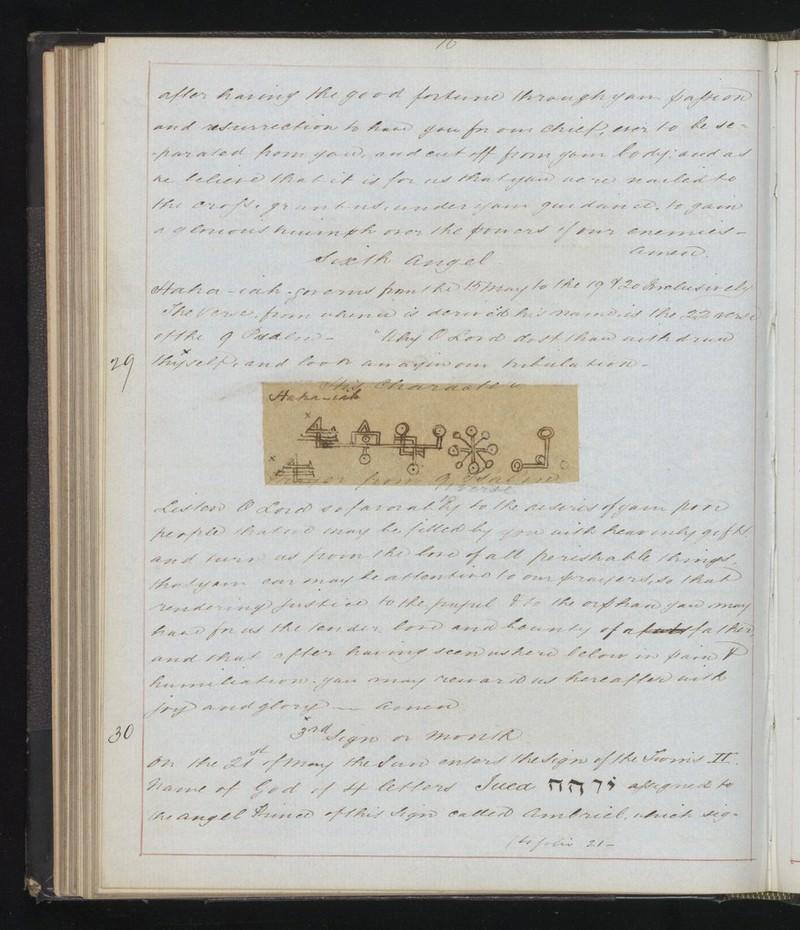 16
after having the good fortune through your passion
and resurrection to have you for our chief, ever to be se-
-parated from you, and cut off from your body; and as
we believe that it is for us that you were nailed to
the cross, grant us, under your guidance, to gain
a glorious triumph over the powers of our enemies -
amen.
Sixth Angel
Haka-iah - governs from the 15 May to the 19 & 20 Inclusively
The verse, from whence is derived his name is the 22 verse
of the 9 Psalm - "Why O Lord dost thou withdraw
29 thyself, and look away in our tribulation -
His Character
Haka-iah
Prayer from 9 Psalm
verse
Listen O Lord so favorably to the desires of your poor
people that we may be filled by you with heavenly gifts
and turn us from the love of all perishable things,
that your ear may be attentive to our prayers, so that
rendering justice to the pupil & to the orphan you may
have for us the tender love and bounty of a father
and that after having seen us here below in pain &
humiliation, you may reward us hereafter with
joy and glory — amen
30 3rd Sign or Month
On the 21st of May the Sun enters the sign of the Twins II.
Name of God of 4 letters יוהה assigned to
the angel Prince of this Sign called Ambriel, which sig-
folio 21 -